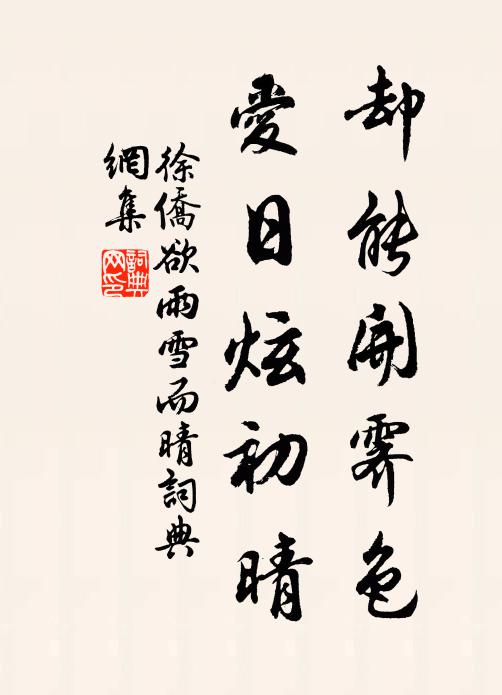 却能開霽色
愛日炫初晴
徐僑欲雨雪而晴詞典
網集
詞典
网印